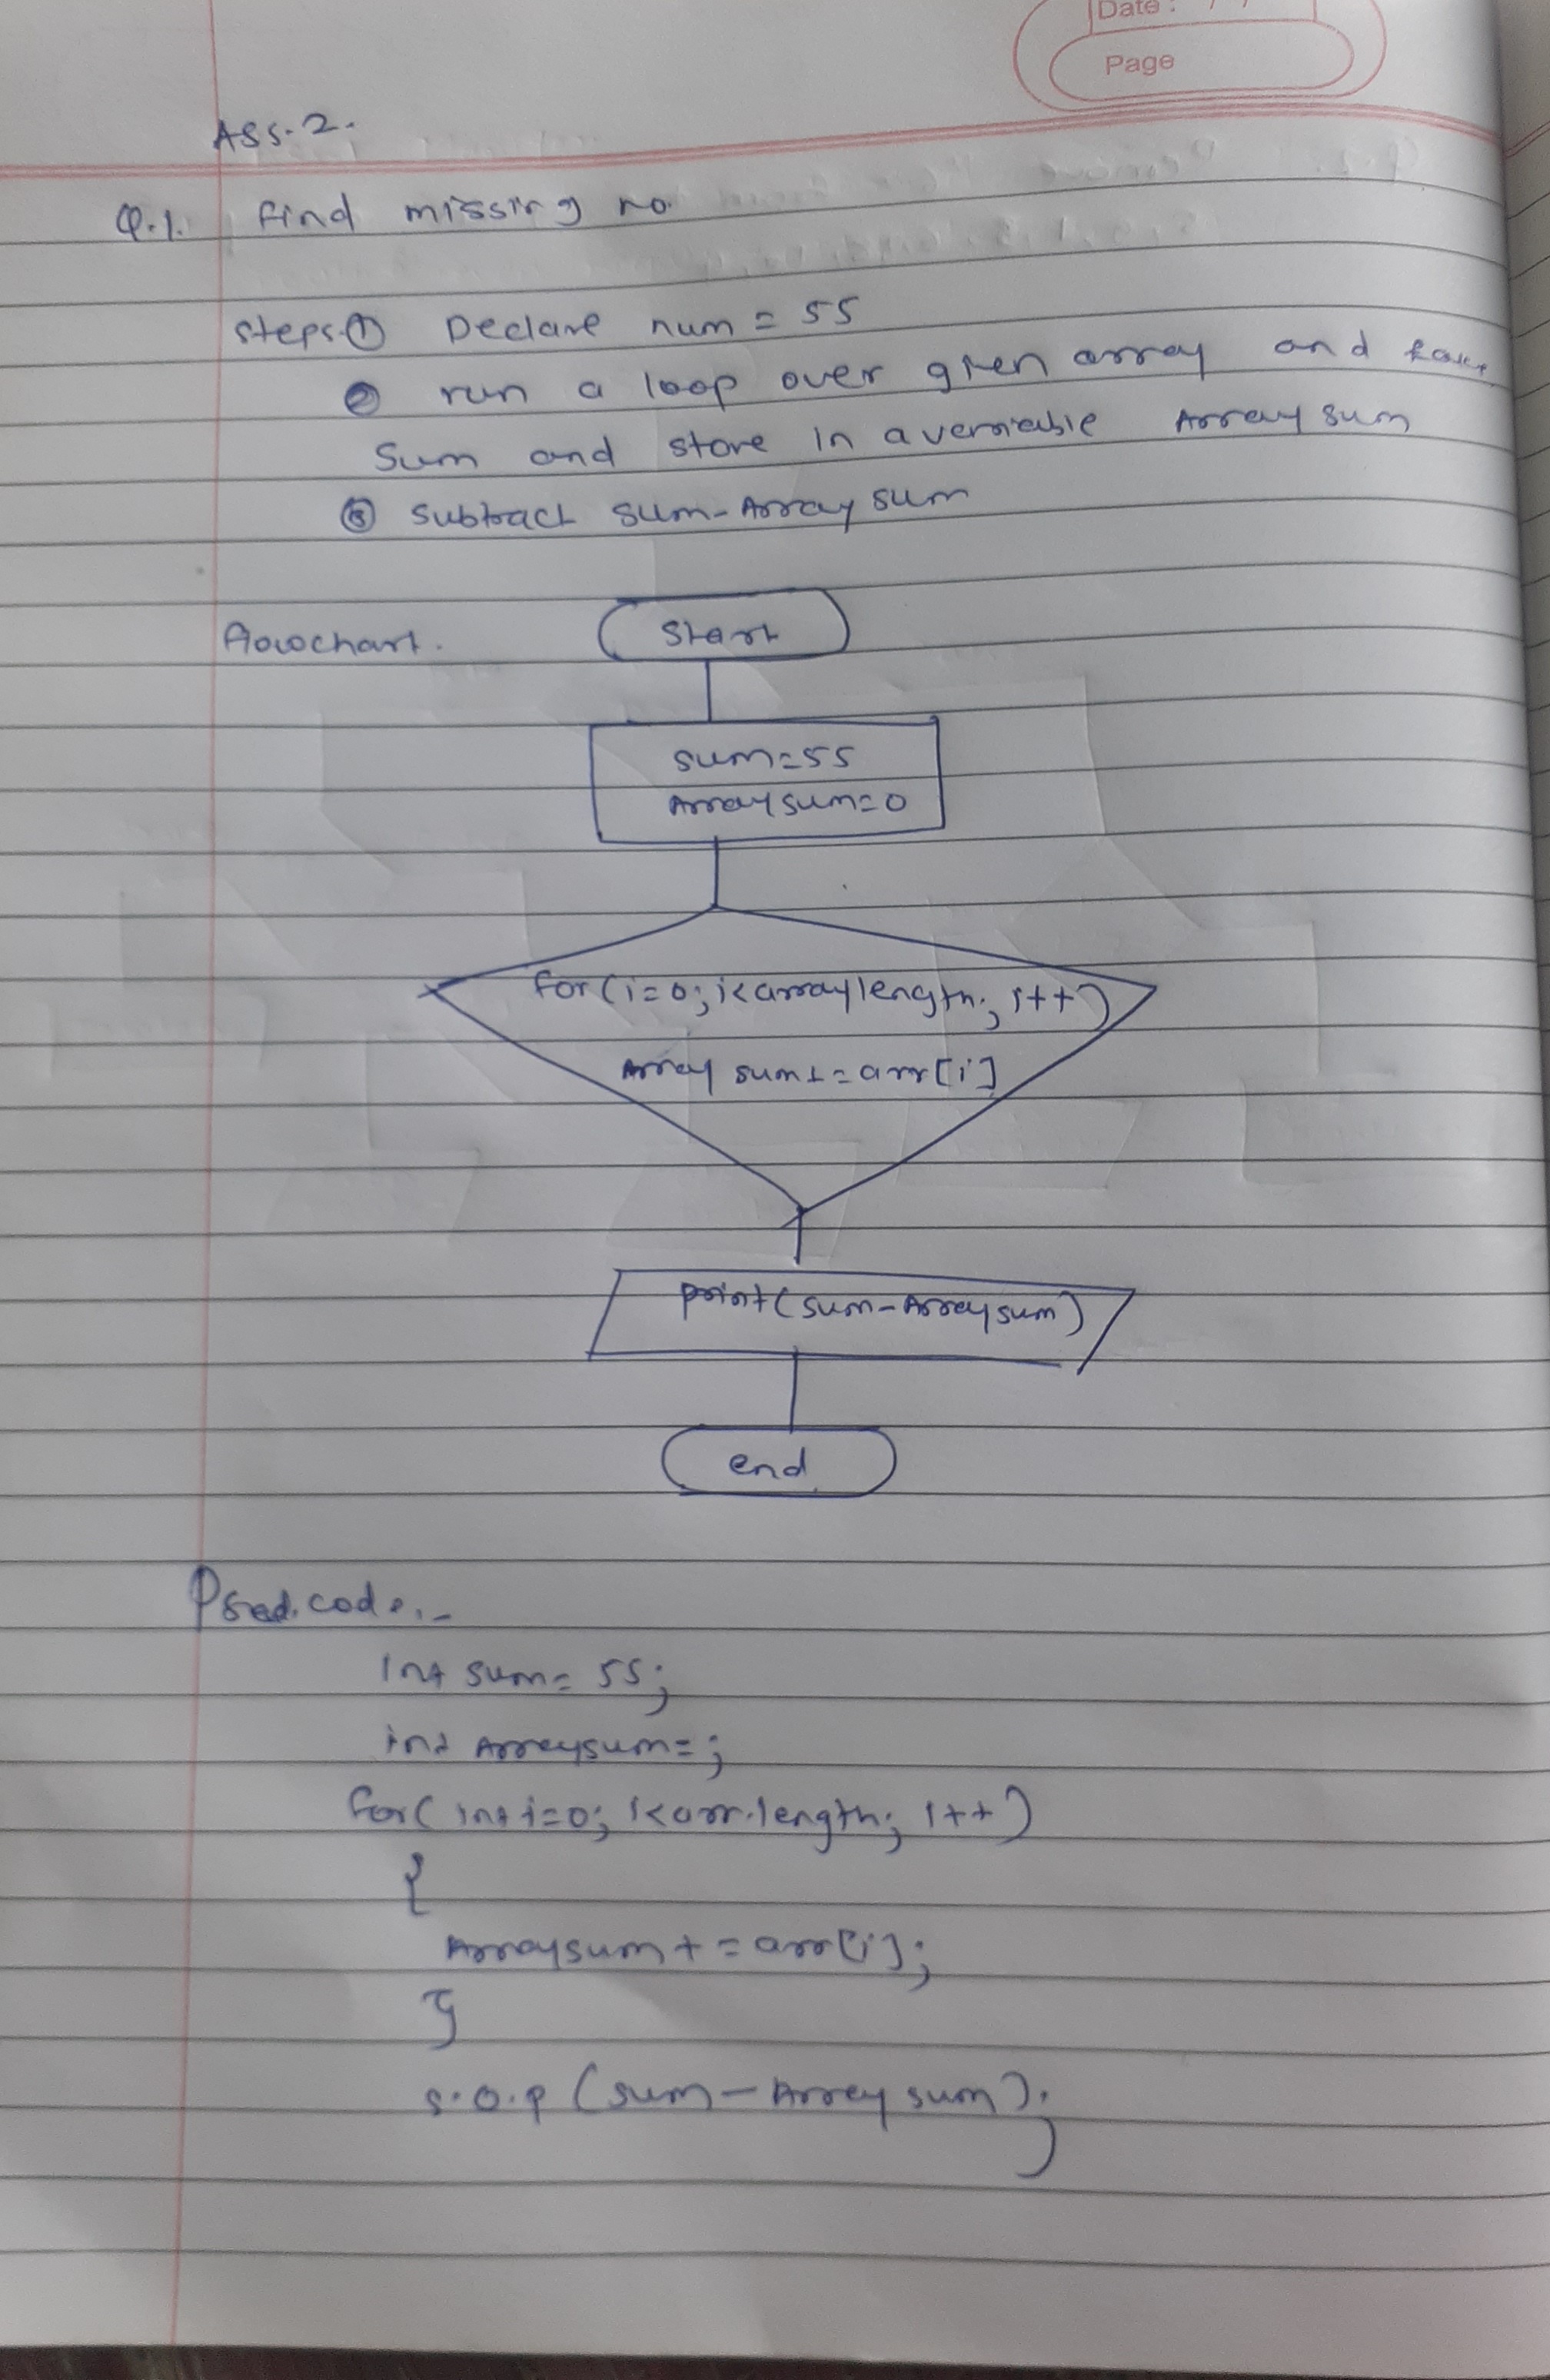 Date : / /
Page
Ass. 2.
Q.1. find missing no.
Steps ① Declare num = 55
② run a loop over given array and take
Sum and store in a veriable Array sum
③ subtract sum - Array sum
flowchart.
Start
sum=55
Array sum=0
for(i=0; i<array length; i++)
Array sum+=arr[i]
print(sum-Array sum)
end
Psed.code:-
int sum= 55;
int Arraysum=;
for(int i=0; i<arr.length; i++)
{
Arraysum+=arr[i];
}
S.O.P (sum-Array sum);